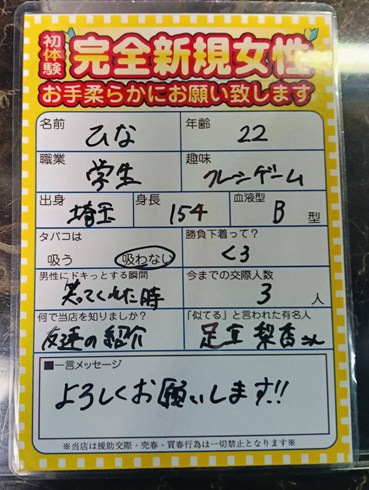 初体験 完全新規女性
お手柔らかにお願い致します
名前 ひな 年齢 22
職業 学生 趣味 クレーンゲーム
出身 埼玉 身長 154 血液型 B 型
タバコは 吸う 吸わない 勝負下着って? くろ
男性にドキっとする瞬間 笑ってくれた時 今までの交際人数 3 人
何で当店を知りましたか? 友達の紹介 「似てる」と言われた有名人 足立梨香さん
■一言メッセージ
よろしくお願いします!!
※当店は援助交際・売春・買春行為は一切禁止となります※